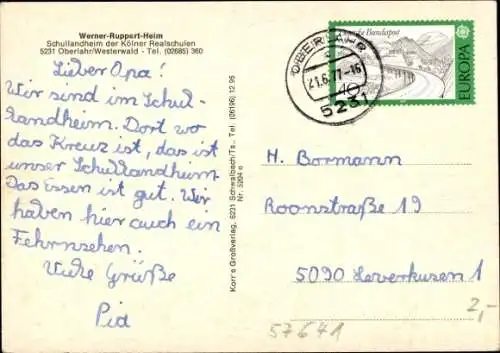 Werner-Ruppert-Heim
Schullandheim der Kölner Realschulen
5231 Oberlahr/Westerwald - Tel. (02685) 360
Lieber Opa!
Wir sind im Schul-
landheim. Dort wo
das Kreuz ist, das ist
unser Schullandheim
Das Essen ist gut. Wir
haben hier auch ein
Fehrnsehen.
Viele Grüße
Pid
Korr's Großverlag, 6231 Schwalbach/Ts., Tel. (06196) 12 95
Nr. 5294 e
Deutsche Bundespost
40
EUROPA
OBERLAHR
21.6.77-16
5231
H. Bormann
Roonstraße 19
5090 Leverkusen 1
2,-
57641